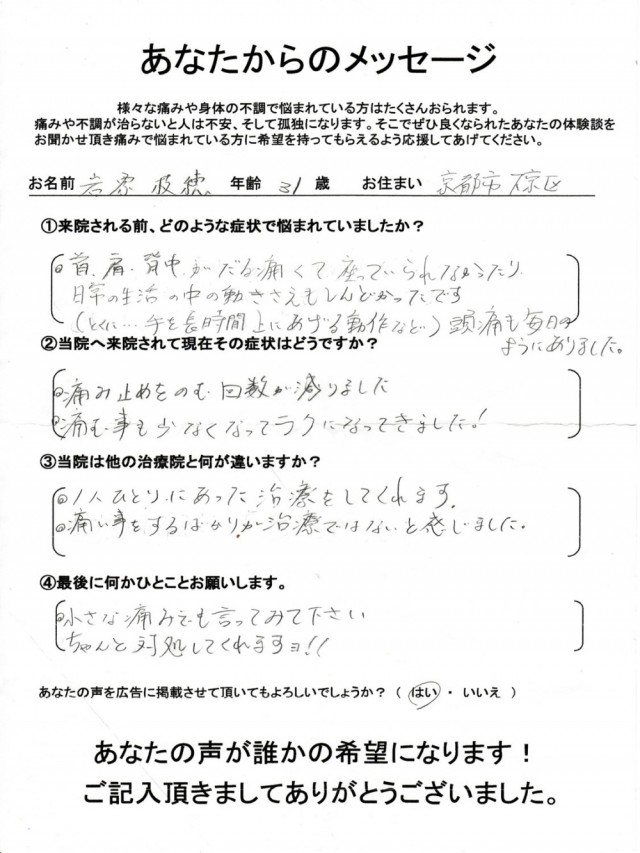 あなたからのメッセージ
様々な痛みや身体の不調で悩まれている方はたくさんおられます。
痛みや不調が治らないと人は不安、そして孤独になります。そこでぜひ良くなられたあなたの体験談を
お聞かせ頂き痛みで悩まれている方に希望を持ってもらえるよう応援してあげてください。
お名前 岩 枝穂 年齢 31 歳 お住まい 京都市 右京区
①来院される前、どのような症状で悩まれていましたか？
首、肩、背中がだる痛くて座っていられなかったり
日常の生活の中の動きさえもしんどかったです
(とくに…手を長時間上にあげる動作など) 頭痛も毎日の
ようにありました。
②当院へ来院されて現在その症状はどうですか？
痛み止めをのむ回数が減りました
痛む事も少なくなってラクになってきました!
③当院は他の治療院と何が違いますか？
1人ひとりにあった治療をしてくれます。
痛い事をするばかりが治療ではないと感じました。
④最後に何かひとことお願いします。
小さな痛みでも言ってみて下さい
ちゃんと対処してくれますヨ!!
あなたの声を広告に掲載させて頂いてもよろしいでしょうか？（ はい ・ いいえ ）
あなたの声が誰かの希望になります！
ご記入頂きましてありがとうございました。